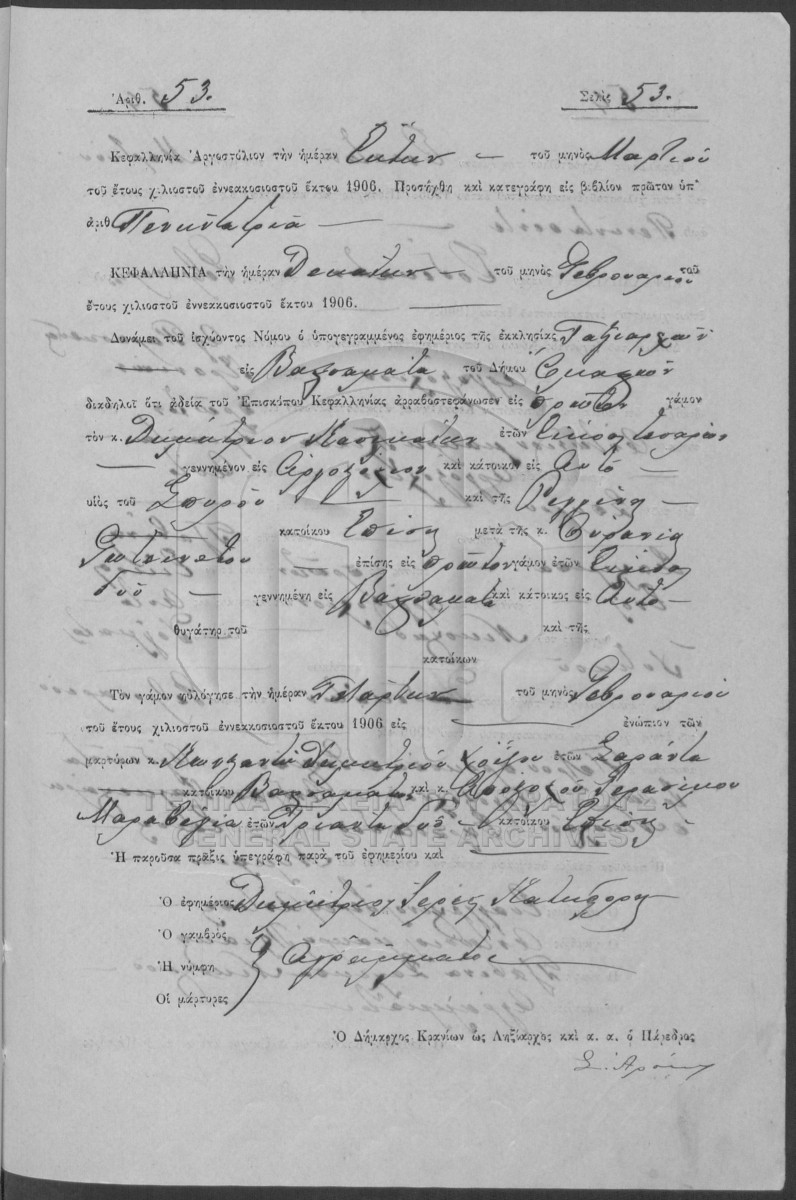 Ἀριθ. 53. Σελὶς 53.
Κεφαλληνία Ἀργοστόλιον τὴν ἡμέραν Ἕκτην — τοῦ μηνὸς Μαρτίου
τοῦ ἔτους χιλιοστοῦ ἐννεακοσιοστοῦ ἕκτου 1906. Προσήχθη καὶ κατεγράφη εἰς βιβλίον πρῶτον ὑπ᾽
ἀριθ. Πενῆντατρία —
ΚΕΦΑΛΛΗΝΙΑ τὴν ἡμέραν Δεκάτην — τοῦ μηνὸς Φεβρουαρίου τοῦ
ἔτους χιλιοστοῦ ἐννεακοσιοστοῦ ἕκτου 1906.
Δυνάμει τοῦ ἰσχύοντος Νόμου ὁ ὑπογεγραμμένος ἐφημέριος τῆς ἐκκλησίας Ταξιαρχῶν
εἰς Βαλσαμάτα τοῦ Δήμου Ὁμαλῶν
διαδηλοῖ ὅτι ἀδείᾳ τοῦ Ἐπισκόπου Κεφαλληνίας ἀρραβοστεφάνωσεν εἰς πρῶτον γάμον
τὸν κ. Δημήτριον ἐτῶν Εἴκοσι τεσσάρων
— γεννημένον εἰς Ἀργοστόλιον καὶ κάτοικον εἰς Αὐτό —
υἱὸς τοῦ Σπύρου — καὶ τῆς Ρεγγίνης —
κατοίκου Ἐπίσης μετὰ τῆς κ. Οὐρανίας
— ἐπίσης εἰς πρῶτον γάμον ἐτῶν Εἴκοσι
δύο — γεννημένη εἰς Βαλσαμάτα καὶ κάτοικος εἰς Αὐτό —
θυγάτηρ τοῦ καὶ τῆς
κατοίκων
Τὸν γάμον ηὐλόγησε τὴν ἡμέραν Τετάρτην τοῦ μηνὸς Φεβρουαρίου
τοῦ ἔτους χιλιοστοῦ ἐννεακοσιοστοῦ ἕκτου 1906 εἰς — ἐνώπιον τῶν
μαρτύρων κ. Κωνσταντῆ Δημητρίου ἐτῶν Σαράντα
— κατοίκου Βαλσαμάτα καὶ κ. Γερασίμου
Μαραβέγια ἐτῶν Τριανταδύο — κατοίκου Ἐπίσης
ΓΕΝΙΚΑ ΑΡΧΕΙΑ ΤΟΥ ΚΡΑΤΟΥΣ
GENERAL STATE ARCHIVES
Ἡ παροῦσα πρᾶξις ὑπεγράφη παρὰ τοῦ ἐφημερίου καὶ
Ὁ ἐφημέριος Δημήτριος Ἱερεὺς
Ὁ γαμβρὸς
Ἡ νύμφη Ἀγράμματοι
Οἱ μάρτυρες
Ὁ Δήμαρχος Κρανίων ὡς Ληξίαρχος καὶ α. α. ὁ Πάρεδρος